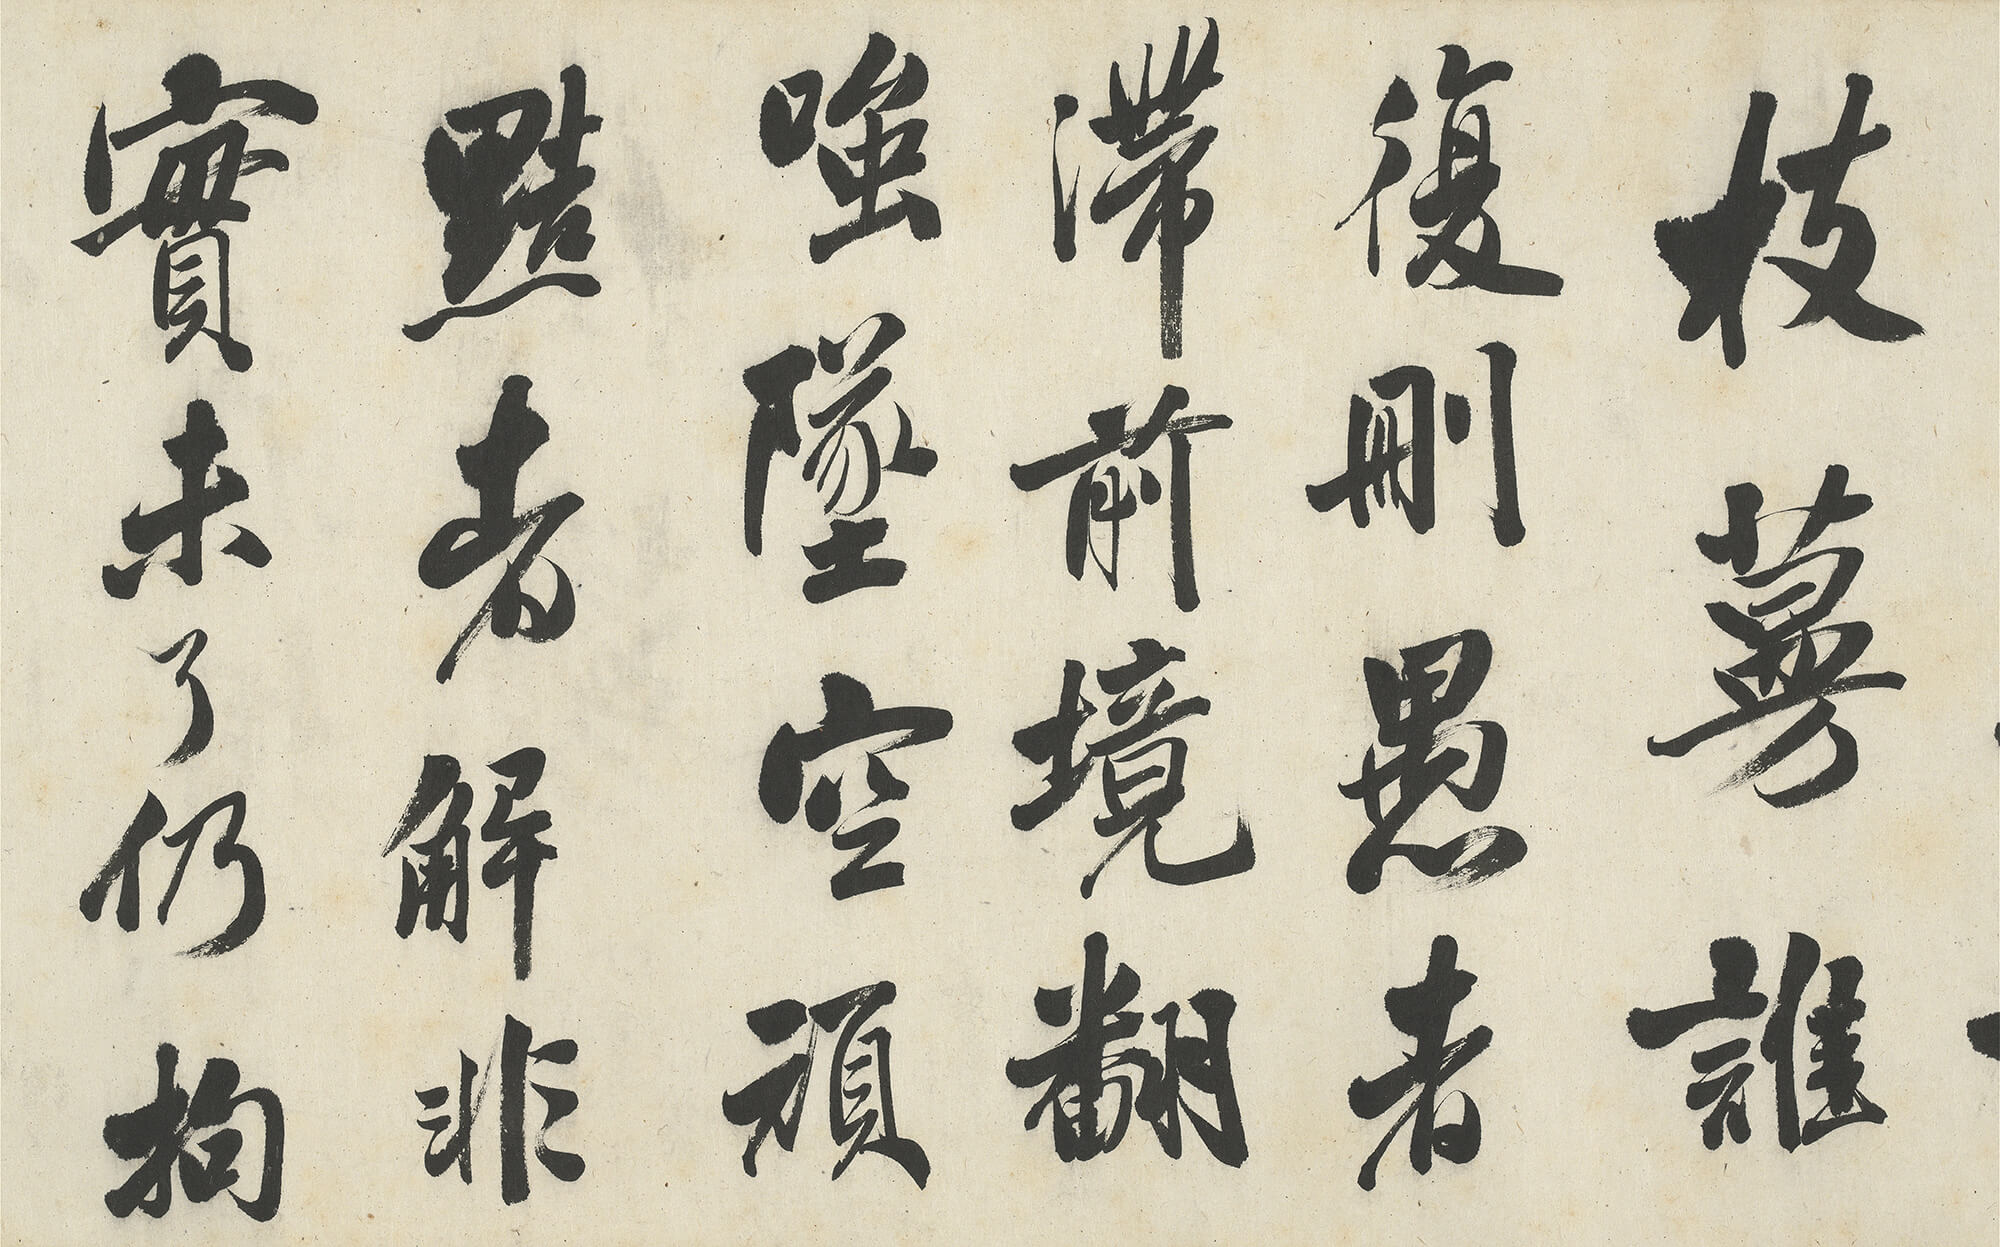 枝蔓誰
復刪愚者
滯前境翻
嗤墜空頑
黠者解非
實未了仍拘